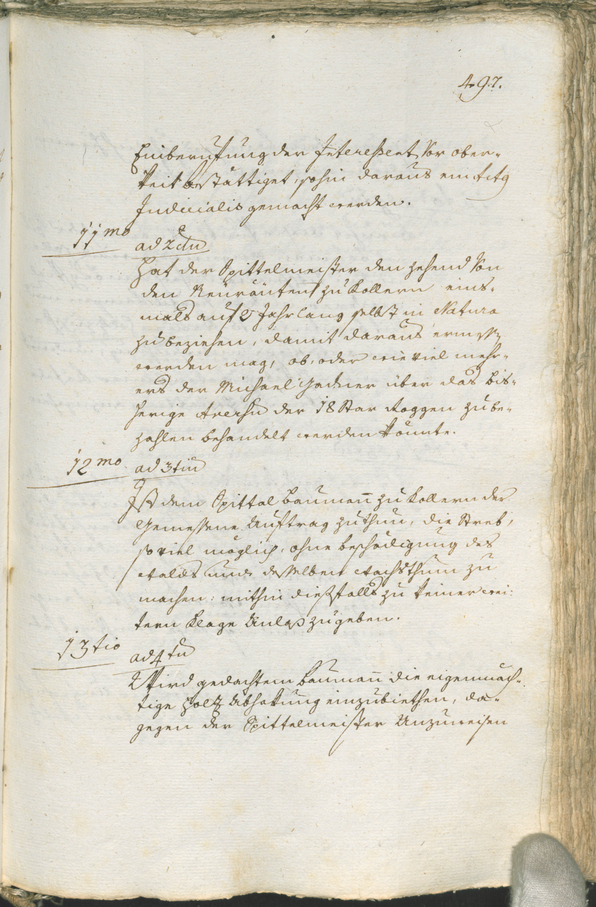 497.
Einberufung der Interessent, Vor ober-
keit bestättiget, sohin daraus ein actg
Judicialis gemacht werden.
11mo ad 2dum
Hat der Spittelmeister den zehend Von
den Neuräuten zu Kollern eins-
mals auf 3 Jahr lang selbst in Natura
zu beziehen, damit daraus ermessen
werden mag, ob, oder wie viel mehr-
ers der Michael Gasser über das bis-
herige der 18 Star Roggen zu be-
zahlen behandelt werden könnte.
12mo ad 3tium
Ist dem Spittal Baumann zu Kollern der
Gemessene Auftrag zu thun, die Streb,
so viel möglich, ohne beschädigung des
Walds und desselben Wachsthum zu
machen: mithin diesfalls zu keiner wei-
tern Klage Anlas zugeben.
13tio ad 4tum
Wird gedachtem Baumann die eigenmäch-
tige Holz Abhakung einzubiethen, da-
gegen der Spittelmeister Anzuweisen